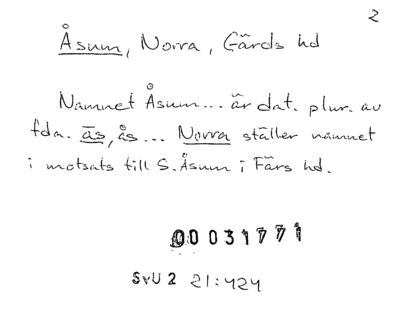 2
Åsum, Norra, Gärds hd
Namnet Åsum... är dat. plur. av
fda. ās, ås... Norra ställer namnet
i motsats till S. Åsum i Färs hd.
00031771
SvU 2 21:424